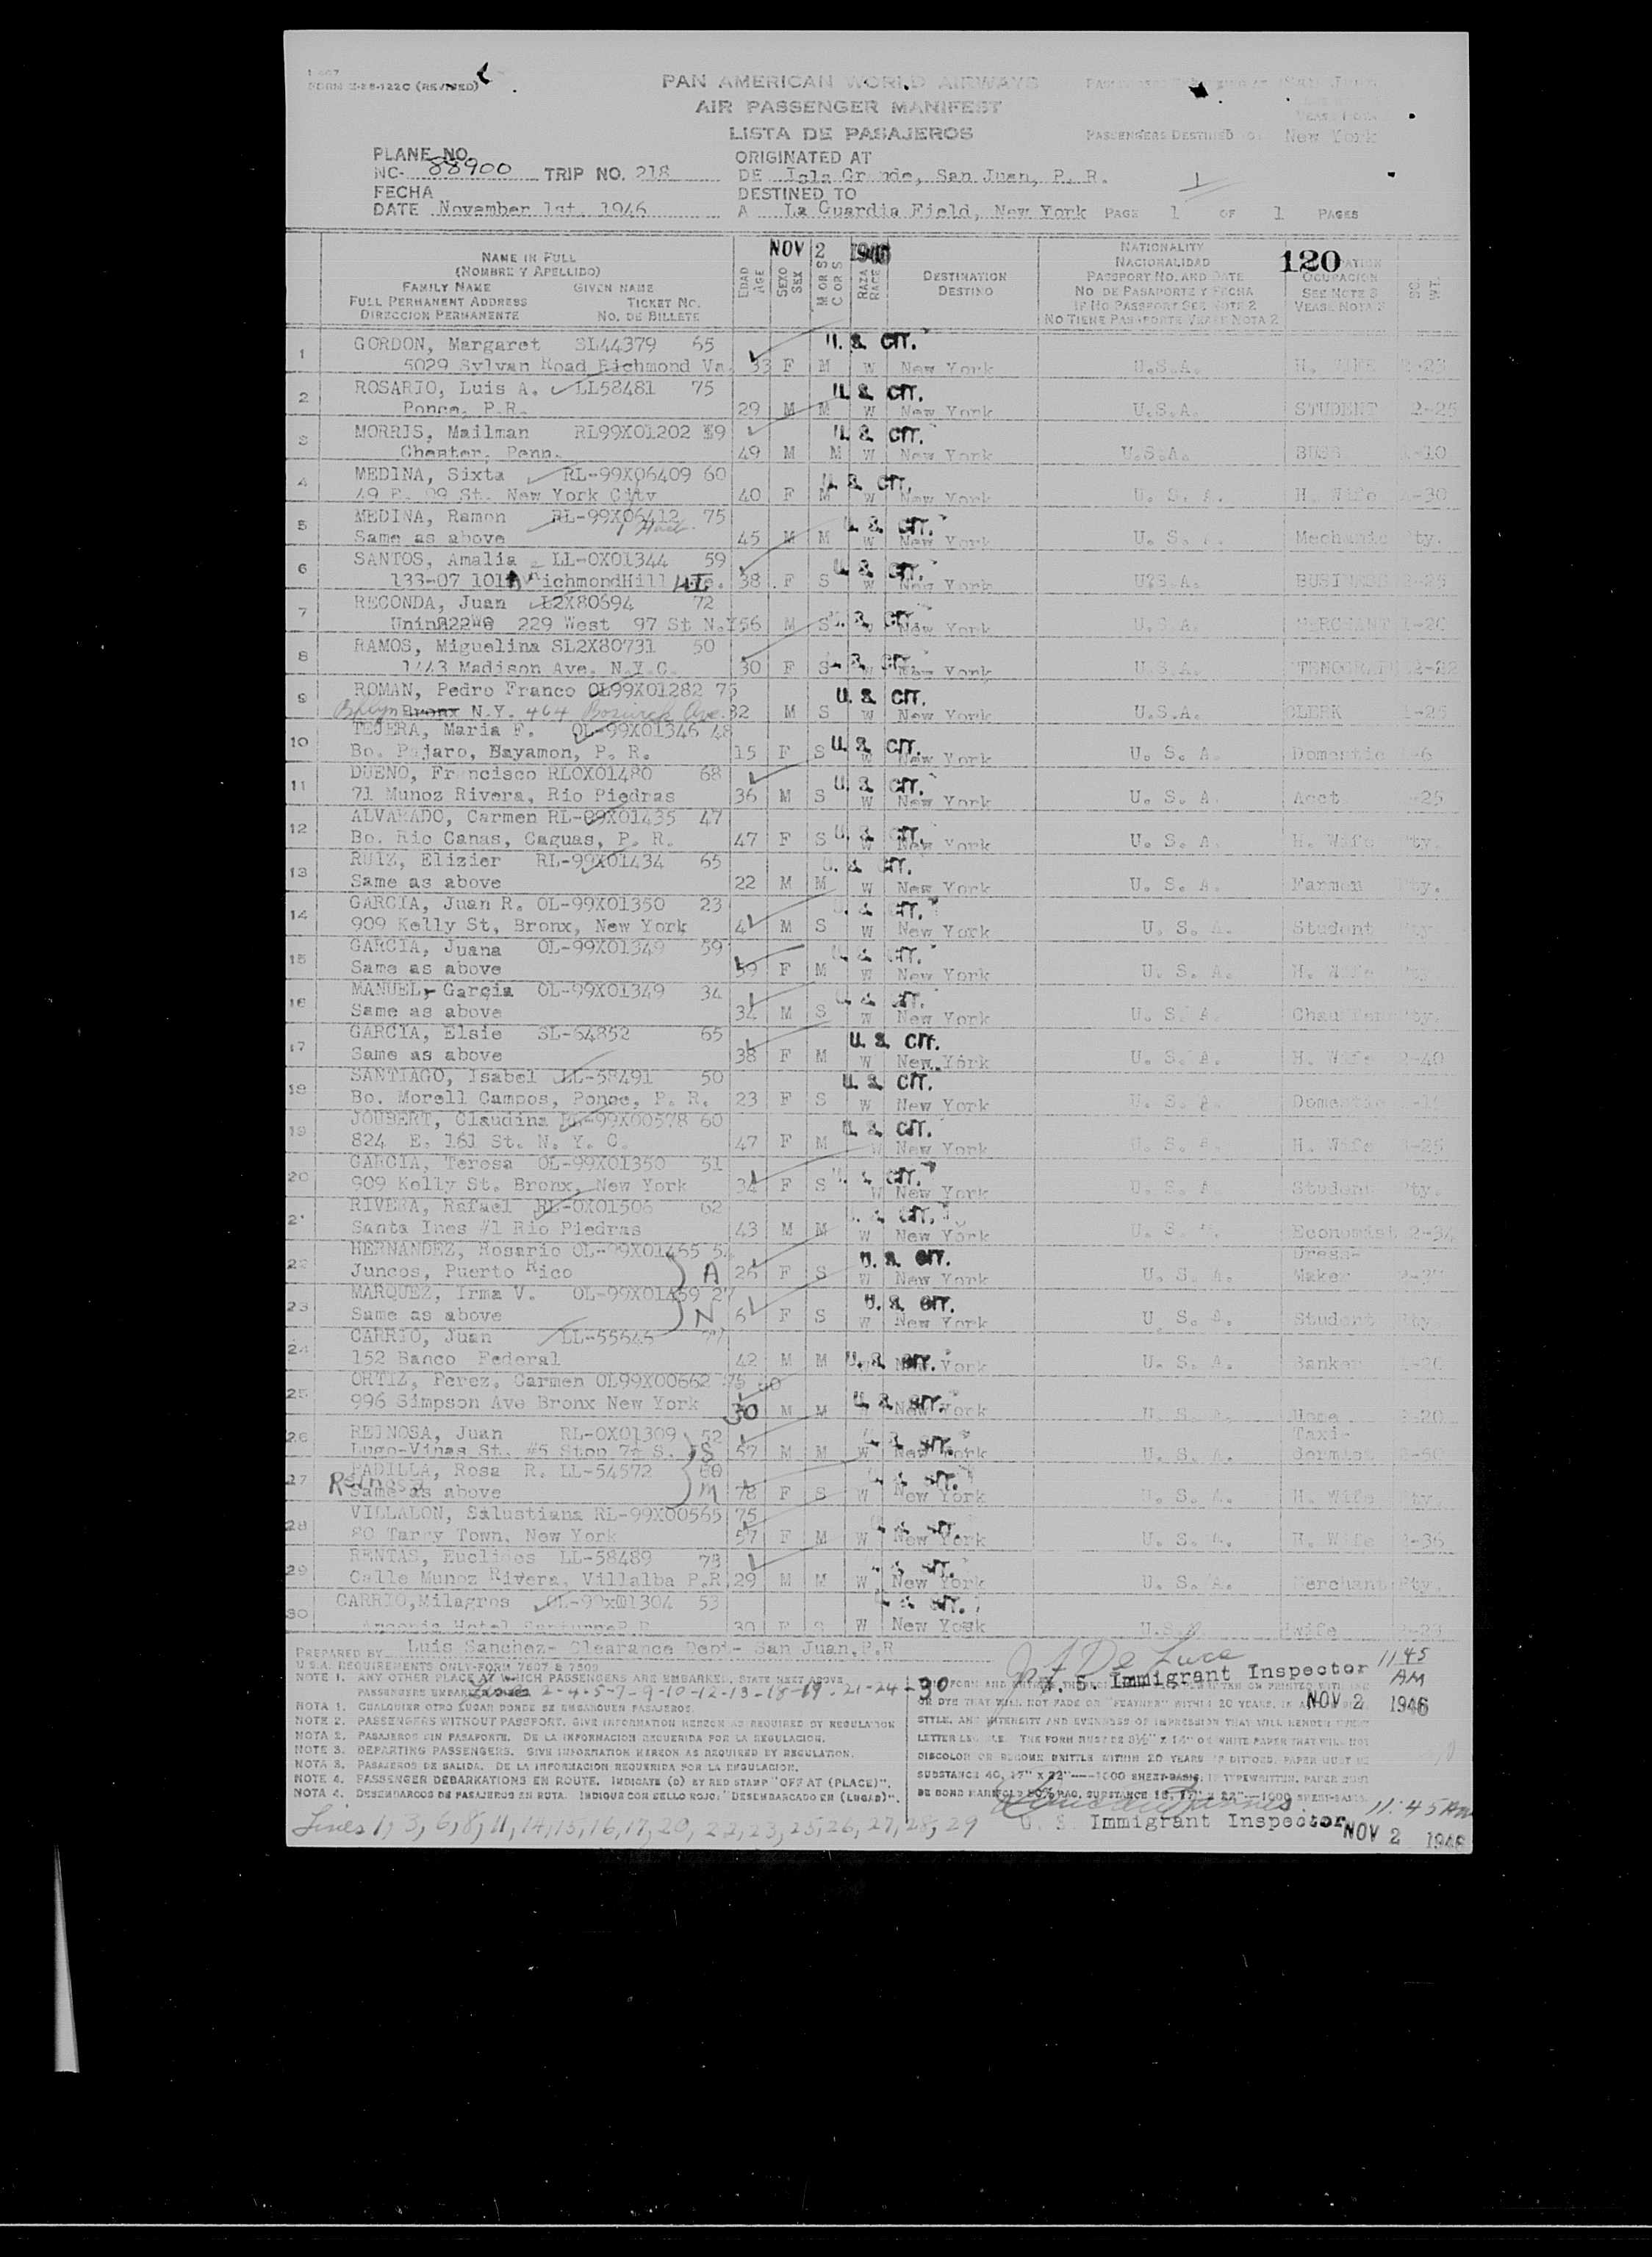 FORM U-26-122C (REVISED)
PAN AMERICAN WORLD AIRWAYS
AIR PASSENGER MANIFEST
LISTA DE PASAJEROS
San Juan
PASSENGERS DESTINED TO: New York
PLANE NO.
NC- 88900 TRIP NO. 218
FECHA
DATE November 1st. 1946
ORIGINATED AT
DE Isla Grande, San Juan, P. R.
DESTINED TO
A La Guardia Field, New York PAGE 1 OF 1 PAGES
NOV 2 1946
120
NAME IN FULL
(NOMBRE Y APELLIDO)
FAMILY NAME GIVEN NAME
FULL PERMANENT ADDRESS TICKET NO.
DIRECCION PERMANENTE NO. DE BILLETE
EDAD AGE
SEXO SEX
M OR S C OR S
RAZA RACE
DESTINATION
DESTINO
NATIONALITY
NACIONALIDAD
PASSPORT NO. AND DATE
NO DE PASAPORTE Y FECHA
IF NO PASSPORT SEE NOTE 2
NO TIENE PASAPORTE VEASE NOTA 2
OCUPACION
SEE NOTE 3
VEASE NOTA 3
1 GORDON, Margaret SL44379 65 U. S. CIT.
5029 Sylvan Road Richmond Va. 33 F M W New York U.S.A. H. WIFE 2-23
2 ROSARIO, Luis A. LL58481 75 U. S. CIT.
Ponce, P.R. 29 M M W New York U.S.A. STUDENT 2-25
3 MORRIS, Mailman RL99X01202 59 U. S. CIT.
Chester, Penn. 49 M M W New York U.S.A. BUSS -10
4 MEDINA, Sixta RL-99X06409 60 U. S. CIT.
49 E. 09 St. New York City 40 F M W New York U. S. A. H. Wife -30
5 MEDINA, Ramon RL-99X06412 75 U. S. CIT.
Same as above 45 M M W New York U. S. A. Mechanic Pty.
6 SANTOS, Amalia LL-0X01344 59 U. S. CIT.
133-07 101 Av RichmondHill 38 F S W New York U.S.A. BUSINESS -25
7 RECONDA, Juan L2X80694 72 U. S. CIT.
229 West 97 St N.Y 56 M S W New York U.S.A. MERCHANT -20
8 RAMOS, Miguelina SL2X80731 50 U. S. CIT.
1443 Madison Ave. N.Y.C. 30 F S W New York U.S.A. STENOGRAPH 2-22
9 ROMAN, Pedro Franco OL99X01282 75 U. S. CIT.
Bklyn Bronx N.Y. 464 Ave. 32 M S W New York U.S.A. CLERK -25
10 TEJERA, Maria F. OL-99X01346 48 U. S. CIT.
Bo. Pajaro, Bayamon, P. R. 15 F S W New York U. S. A. Domestic -6
11 DUENO, Francisco RL0X01480 68 U. S. CIT.
71 Munoz Rivera, Rio Piedras 36 M S W New York U. S. A. Acct -25
12 ALVARADO, Carmen RL-99X01435 47 U. S. CIT.
Bo. Rio Canas, Caguas, P. R. 47 F S W New York U. S. A. H. Wife Pty.
13 RUIZ, Elizier RL-99X01434 65 U. S. CIT.
Same as above 22 M M W New York U. S. A. Farmen Pty.
14 GARCIA, Juan R. OL-99X01350 23 U. S. CIT.
909 Kelly St, Bronx, New York 4 M S W New York U. S. A. Student Pty.
15 GARCIA, Juana OL-99X01349 59 U. S. CIT.
Same as above 59 F M W New York U. S. A. H. Wife Pty
16 MANUEL, Garcia OL-99X01349 34 U. S. CIT.
Same as above 34 M S W New York U. S. A. Chauffer Pty.
17 GARCIA, Elsie SL-64852 65 U. S. CIT.
Same as above 38 F M W New York U. S. A. H. Wife 2-40
18 SANTIAGO, Isabel LL-58491 50 U. S. CIT.
Bo. Morell Campos, Ponce, P. R. 23 F S W New York U. S. A. Domestic
19 JOUBERT, Claudina RL-99X00578 60 U. S. CIT.
824 E. 161 St. N. Y. C. 47 F M W New York U. S. A. H. Wife -25
20 GARCIA, Teresa OL-99X01350 51 U. S. CIT.
909 Kelly St. Bronx, New York 34 F S W New York U. S. A. Student Pty.
21 RIVERA, Rafael RL-0X01506 62 U. S. CIT.
Santa Ines #1 Rio Piedras 43 M M W New York U. S. A. Economist 2-34
22 HERNANDEZ, Rosario OL-99X01455 U. S. CIT. Dress-
Juncos, Puerto Rico A 26 F S W New York U. S. A. Maker
23 MARQUEZ, Irma V. OL-99X01459 27 U. S. CIT.
Same as above N 6 F S W New York U. S. A. Student Pty
24 CARRIO, Juan LL-55645 77
152 Banco Federal 42 M M U. S. CIT. New York U. S. A. Banker -20
25 ORTIZ, Perez, Carmen OL99X00662
996 Simpson Ave Bronx New York 30 M M U. S. CIT. New York U. S. A. Home -20
26 REINOSA, Juan RL-0X01309 52 U. S. CIT. Taxi-
Lugo-Vinas St. #5 Stop 7½ S. 57 M M W New York U. S. A. dermist -50
27 PADILLA, Rosa R. LL-54572 60 U. S. CIT.
Reinosa Same as above M 78 F S W New York U. S. A. H. Wife Pty.
28 VILLALON, Salustiana RL-99X00565 75 U. S. CIT.
80 Tarry Town, New York 57 F M W New York U. S. A. H. Wife -36
29 RENTAS, Euclides LL-58489 73 U. S. CIT.
Calle Munoz Rivera, Villalba P.R 29 M M W New York U. S. A. Merchant Pty.
30 CARRIO, Milagros OL-99x01304 53 U. S. CIT.
Hotel Santurce P.R 30 F S W New York U.S.A wife 2-23
PREPARED BY Luis Sanchez- Clearance Dept- San Juan, P.R
U.S.A. REQUIREMENTS ONLY-FORM 7507 & 7509
NOTE 1. ANY OTHER PLACE AT WHICH PASSENGERS ARE EMBARKED, STATE NEXT ABOVE
PASSENGERS EMBARKED
Lines 2-4-5-7-9-10-12-13-18-19-21-24-30
NOTA 1. CUALQUIER OTRO LUGAR DONDE SE EMBARQUEN PASAJEROS.
NOTE 2. PASSENGERS WITHOUT PASSPORT. GIVE INFORMATION HEREON AS REQUIRED BY REGULATION
NOTA 2. PASAJEROS SIN PASAPORTE. DE LA INFORMACION REQUERIDA POR LA REGULACION.
NOTE 3. DEPARTING PASSENGERS. GIVE INFORMATION HEREON AS REQUIRED BY REGULATION.
NOTA 3. PASAJEROS DE SALIDA. DE LA INFORMACION REQUERIDA POR LA REGULACION.
NOTE 4. PASSENGER DEBARKATIONS EN ROUTE. INDICATE (D) BY RED STAMP "OFF AT (PLACE)".
NOTA 4. DESEMBARCOS DE PASAJEROS EN RUTA. INDIQUE CON SELLO ROJO: "DESEMBARCADO EN (LUGAR)".
J. F. De Luca 11 45 AM
U. S. Immigrant Inspector
NOV 2 1946
OR DYE THAT WILL NOT FADE OR "FEATHER" WITHIN 20 YEARS.
STYLE, AND INTENSITY AND EVENNESS OF IMPRESSION THAT WILL RENDER EVERY
LETTER LEGIBLE. THE FORM MUST BE 8½" X 14" ON WHITE PAPER THAT WILL NOT
DISCOLOR OR BECOME BRITTLE WITHIN 20 YEARS. IF DITTOED, PAPER MUST BE
SUBSTANCE 40, 17" X 22"—1000 SHEET-BASIS; IF TYPEWRITTEN, PAPER MUST
BE BOND MANIFOLD 50% RAG, SUBSTANCE 16, 17" X 22"—1000 SHEET-BASIS.
11:45 AM
U. S. Immigrant Inspector
NOV 2 1946
Lines 1, 3, 6, 8, 11, 14, 15, 16, 17, 20, 22, 23, 25, 26, 27, 28, 29